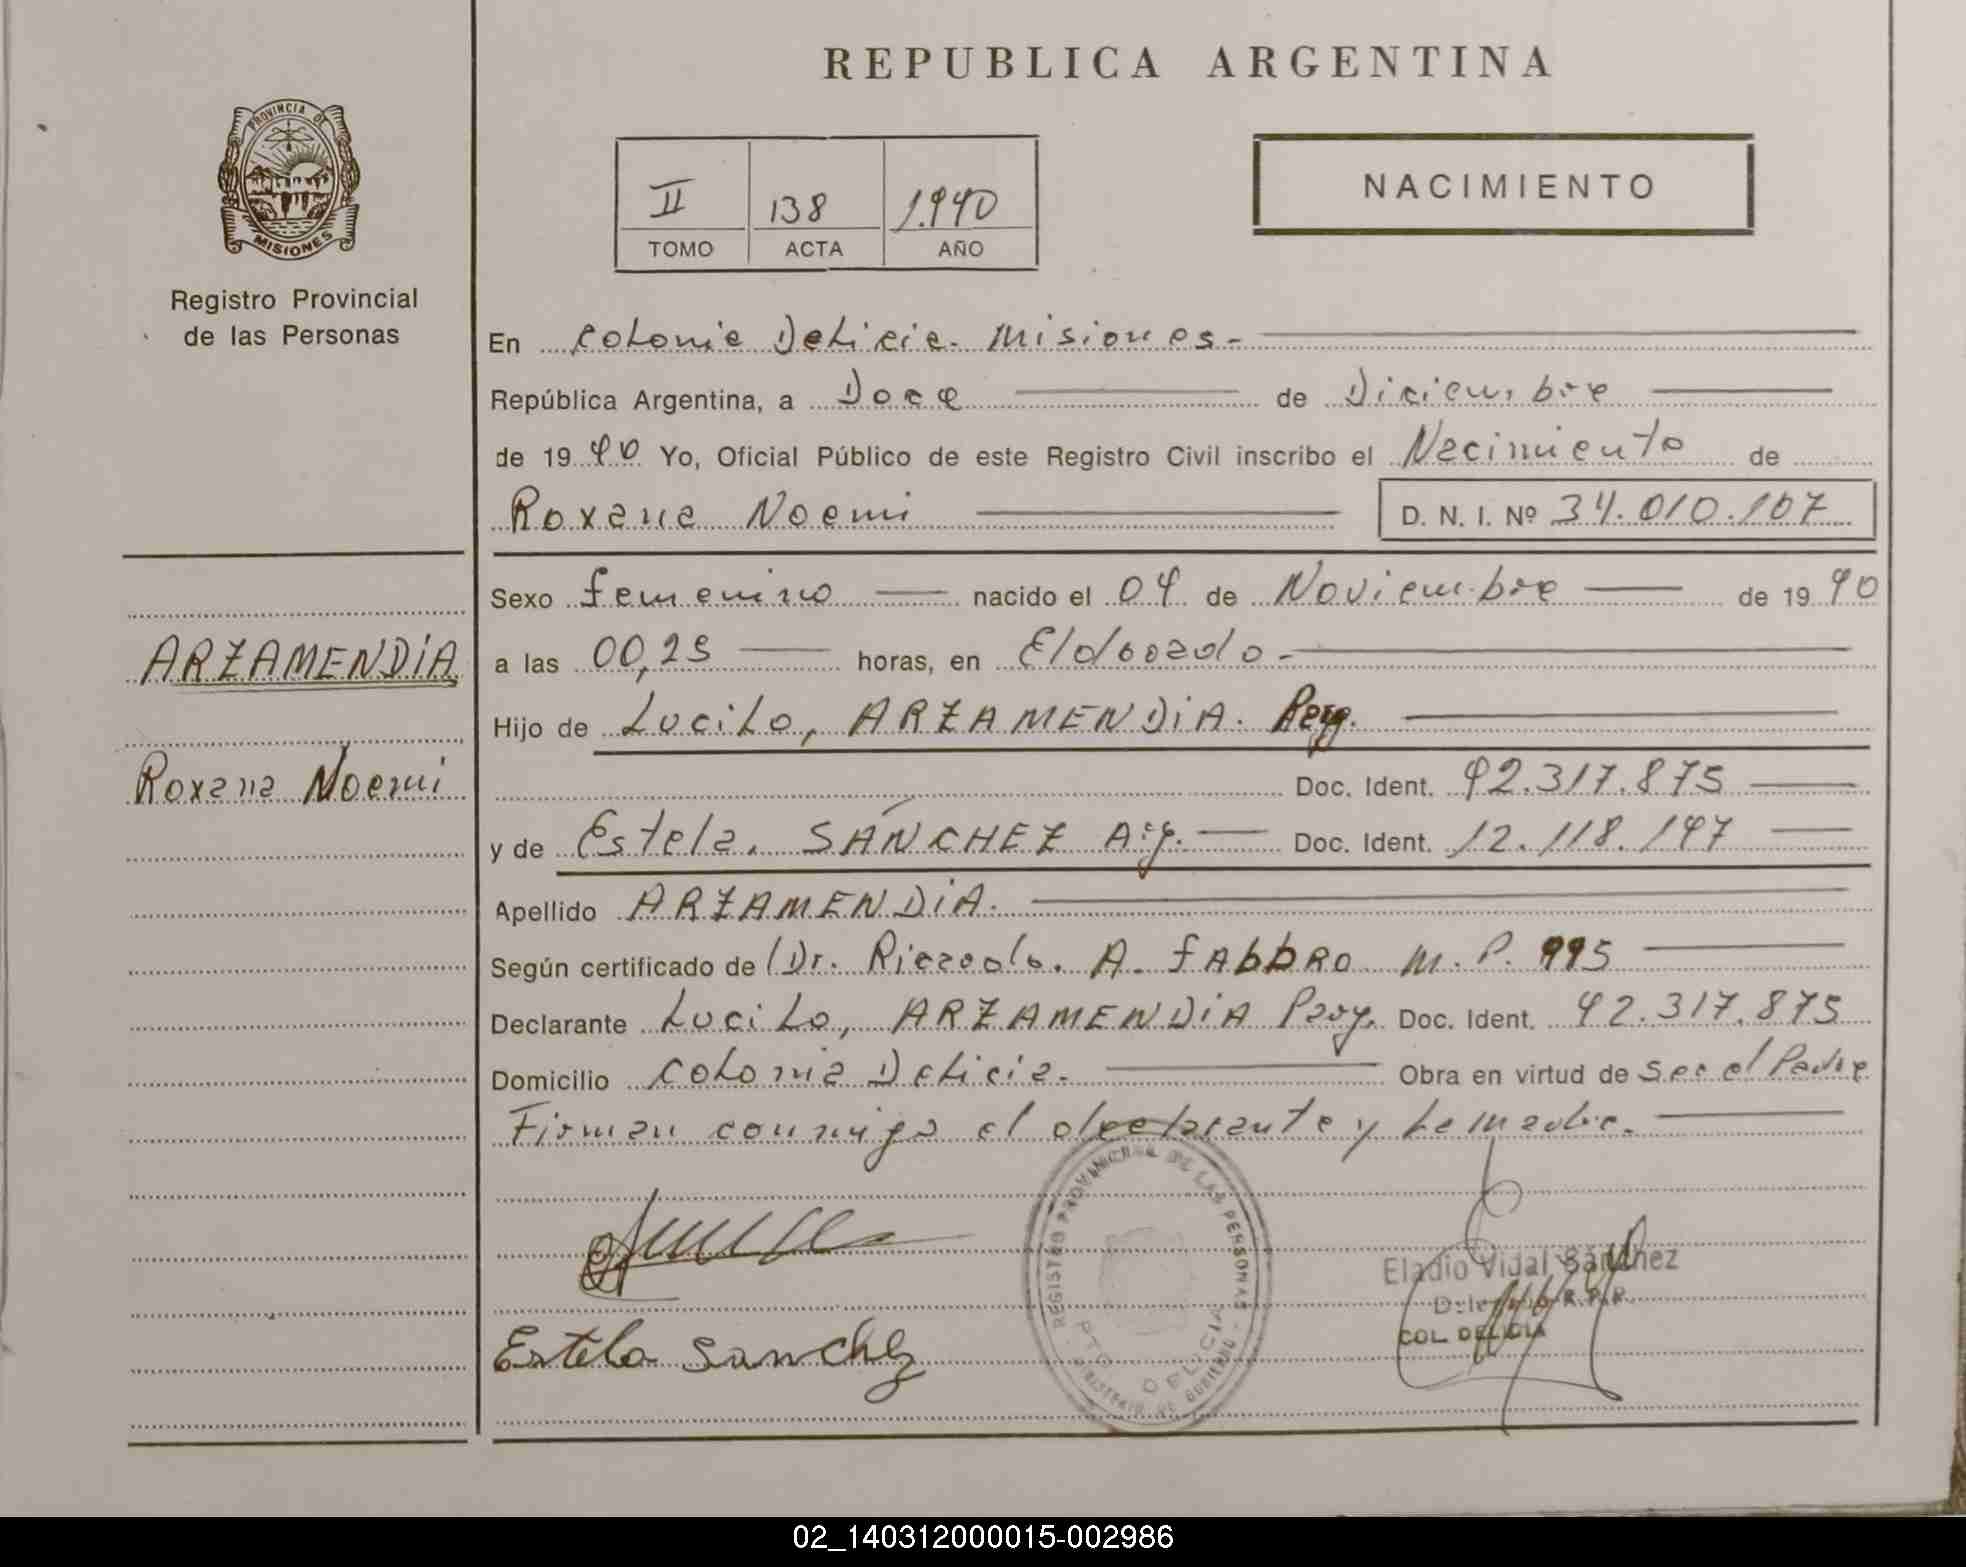 REPUBLICA ARGENTINA
PROVINCIA DE
MISIONES
Registro Provincial
de las Personas
II 138 1.990
TOMO ACTA AÑO
NACIMIENTO
En Colonia Delicia. Misiones.-
República Argentina, a Doce de Diciembre
de 19 90 Yo, Oficial Público de este Registro Civil inscribo el Nacimiento de
Roxana Noemi D. N. I. Nº 34.010.107
ARZAMENDIA
Roxana Noemi
Sexo femenino nacido el 09 de Noviembre de 19 90
a las 00,25 horas, en Eldorado.-
Hijo de Lucilo, ARZAMENDIA. Parg.
Doc. Ident. 92.317.875
y de Estela. SÁNCHEZ Arg. Doc. Ident. 12.118.197
Apellido ARZAMENDIA.
Según certificado de Dr. Ricardo. A. fAbbRO M. P. 995
Declarante Lucilo, ARZAMENDIA Parg. Doc. Ident. 92.317.875
Domicilio Colonia Delicia. Obra en virtud de Ser el Padre
Firman conmigo el declarante y la madre.
REGISTRO PROVINCIAL DE LAS PERSONAS
PTO DELICIA
MINISTERIO DE GOBIERNO
Eladio Vidal Sánchez
R.P.P.
COL. DELICIA
Estela Sanchez
02_140312000015-002986